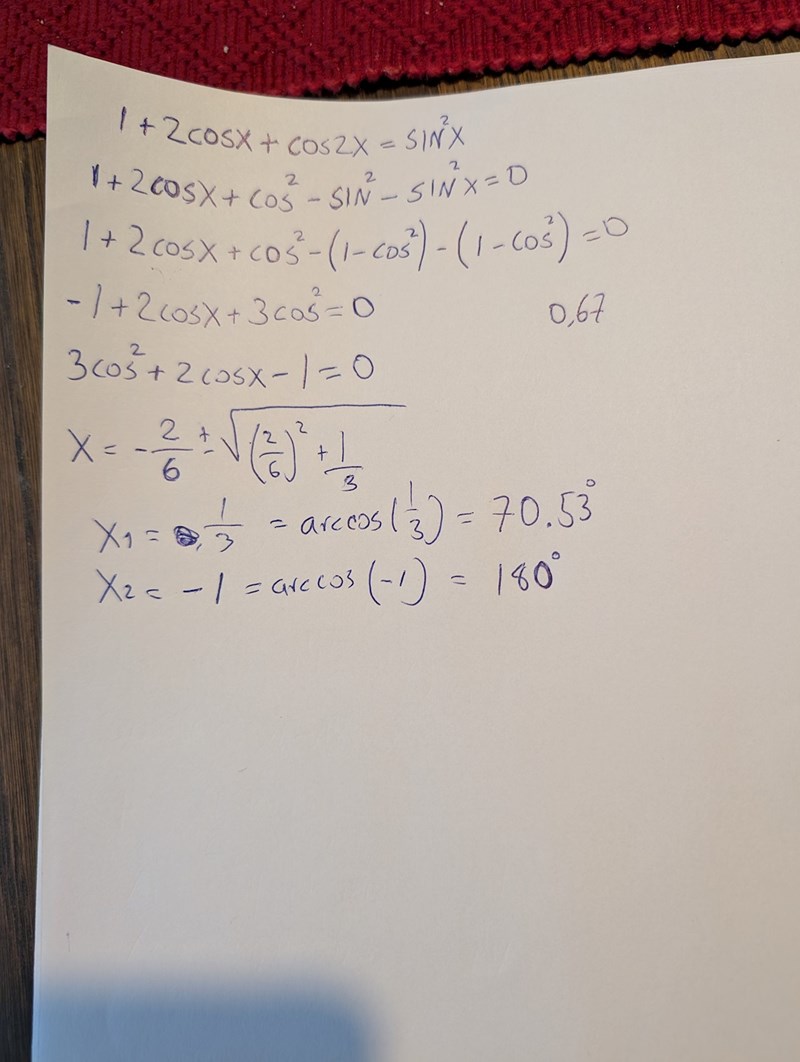 1 + 2cosx + cos2x = sin²x
1 + 2cosx + cos² - sin² - sin²x = 0
1 + 2cosx + cos² - (1 - cos²) - (1 - cos²) = 0
-1 + 2cosx + 3cos² = 0 0,67
3cos² + 2cosx - 1 = 0
x = -2/6 ± √((2/6)² + 1/3)
x₁ = 1/3 = arccos(1/3) = 70.53°
x₂ = -1 = arccos(-1) = 180°